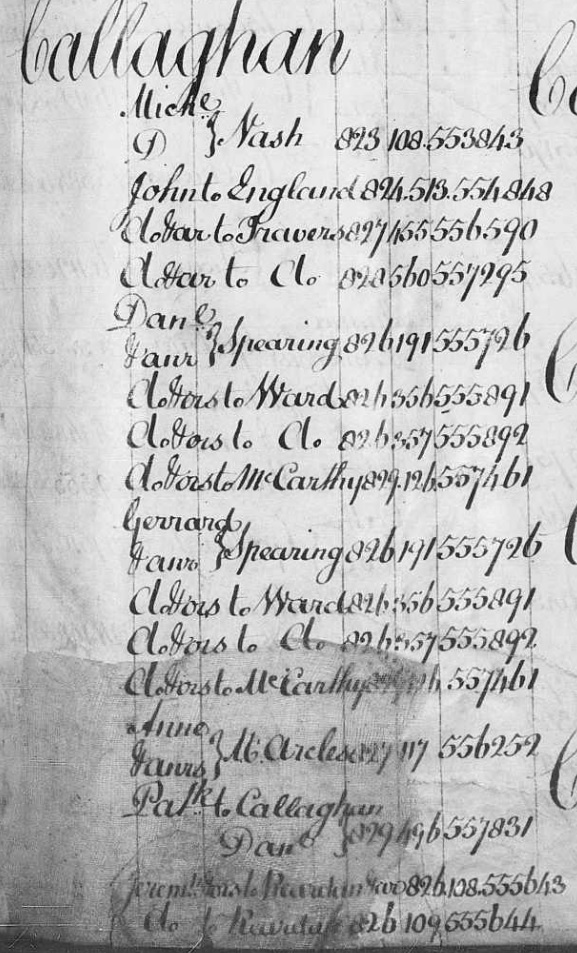 Callaghan
Miche
D } Nash 823 108 553843
John to England 824.513.554848
Do & ar to Travers 827 455 556590
Do & ar to Do 828 560 557295
Danl
& anr } Spearing 826 191 555726
Do & ors to Ward 826 356 555891
Do & ors to Do 826 357 555892
Do & ors to McCarthy 829.126.557461
Gerrard
& anr } Spearing 826 191 555726
Do & ors to Ward 826 356 555891
Do & ors to Do 826 357 555892
Do & ors to McCarthy 557461
Anne
& anrs } 827 117 556252
Patk to Callaghan
Danl } 829 496 557831
Jeremh & ors to Reardan & wo 826.108.555643
Do to Reardan 826 109 555644